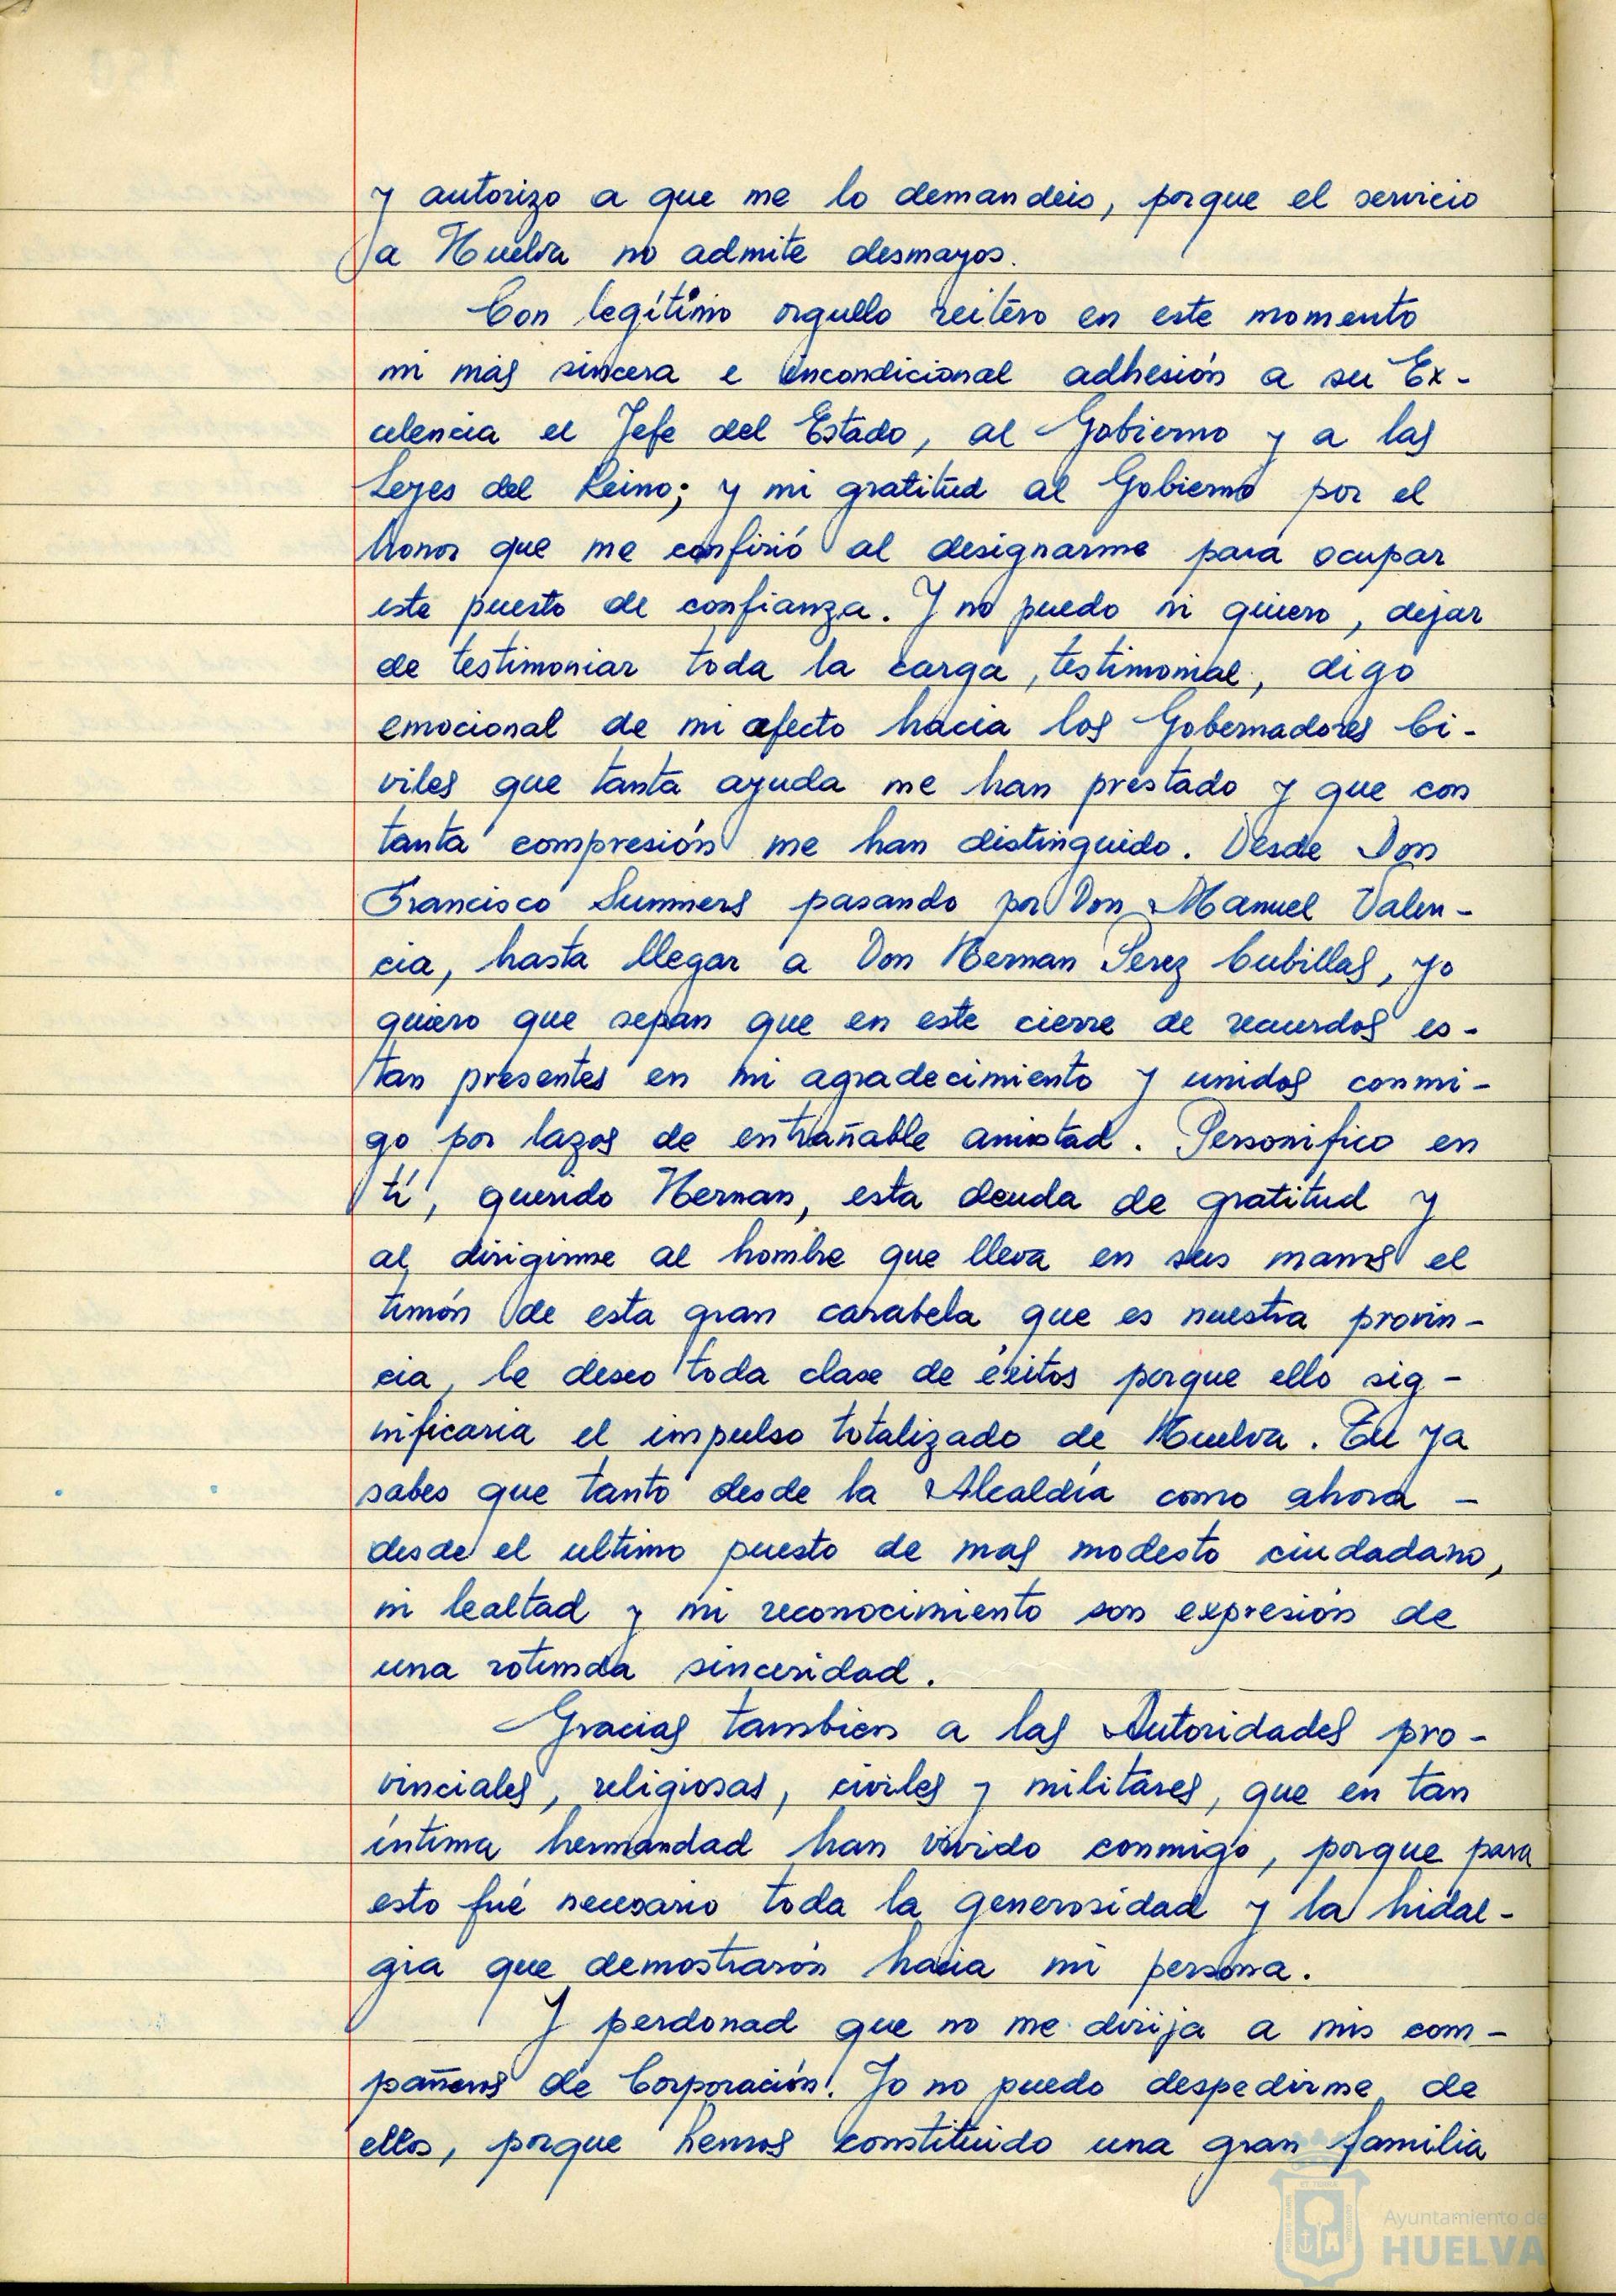 y autorizo a que me lo demandeis, porque el servicio
a Huelva no admite desmayos.
Con legítimo orgullo reitero en este momento
mi más sincera e incondicional adhesión a su Ex-
celencia el Jefe del Estado, al Gobierno y a las
Leyes del Reino; y mi gratitud al Gobierno por el
honor que me confirió al designarme para ocupar
este puesto de confianza. Y no puedo ni quiero, dejar
de testimoniar toda la carga, testimonial, digo
emocional de mi afecto hacia los Gobernadores Ci-
viles que tanta ayuda me han prestado y que con
tanta compresión me han distinguido. Desde Don
Francisco Summers pasando por Don Manuel Valen-
cia, hasta llegar a Don Hernan Perez Cubillas, yo
quiero que sepan que en este cierre de recuerdos es-
tan presentes en mi agradecimiento y unidos conmi-
go por lazos de entrañable amistad. Personifico en
tí, querido Hernan, esta deuda de gratitud y
al dirigirme al hombre que lleva en sus manos el
timón de esta gran carabela que es nuestra provin-
cia, le deseo toda clase de éxitos porque ello sig-
nificaria el impulso totalizado de Huelva. Tu ya
sabes que tanto desde la Alcaldía como ahora -
desde el ultimo puesto de mas modesto ciudadano,
mi lealtad y mi reconocimiento son expresión de
una rotunda sinceridad.
Gracias tambien a las Autoridades pro-
vinciales, religiosas, civiles y militares, que en tan
íntima hermandad han vivido conmigo, porque para
esto fué necesario toda la generosidad y la hidal-
gia que demostrarón hacia mi persona.
Y perdonad que no me dirija a mis com-
pañeros de Corporación. Yo no puedo despedirme de
ellos, porque hemos constituido una gran familia
Ayuntamiento de
HUELVA